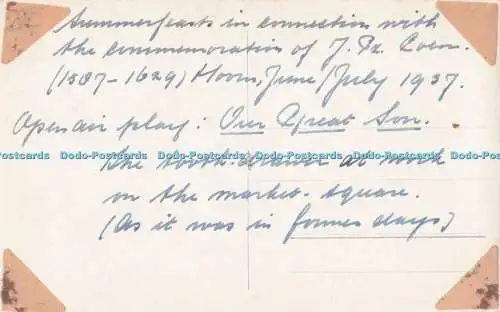 Summerfeasts in connection with
the commemoration of J. Pz. Coen.
(1587-1629) Hoorn, June/July 1937.
Open air play: Our Great Son.
The tooth-drawer at work
on the market-square.
(As it was in former days)
Dodo-Postcards Dodo-Postcards Dodo-Postcards Dodo-Postcards Dodo-Postcards